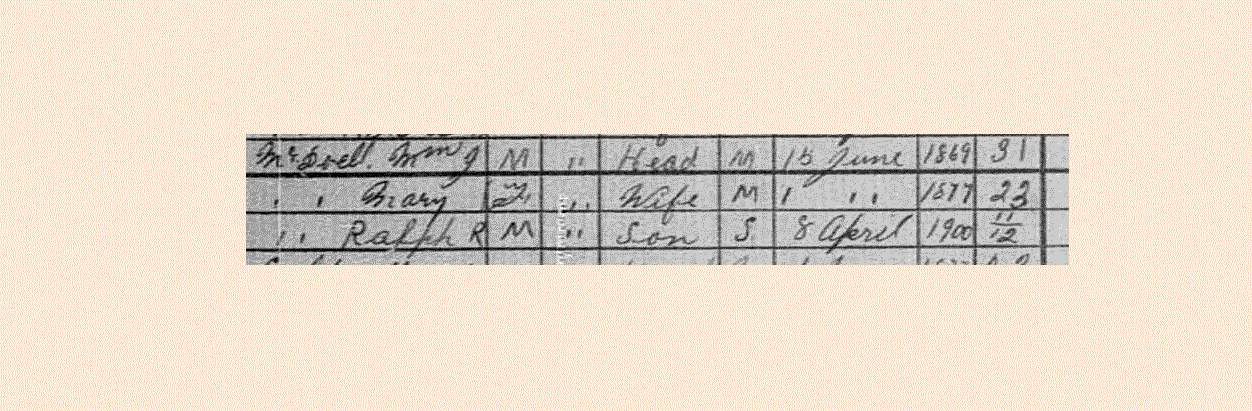 Mc Doell. Wm J M " Head M 15 June 1869 31
" " Mary F " Wife M 1 " 1877 23
" Ralph R M " Son S. 8 April 1900 11/12